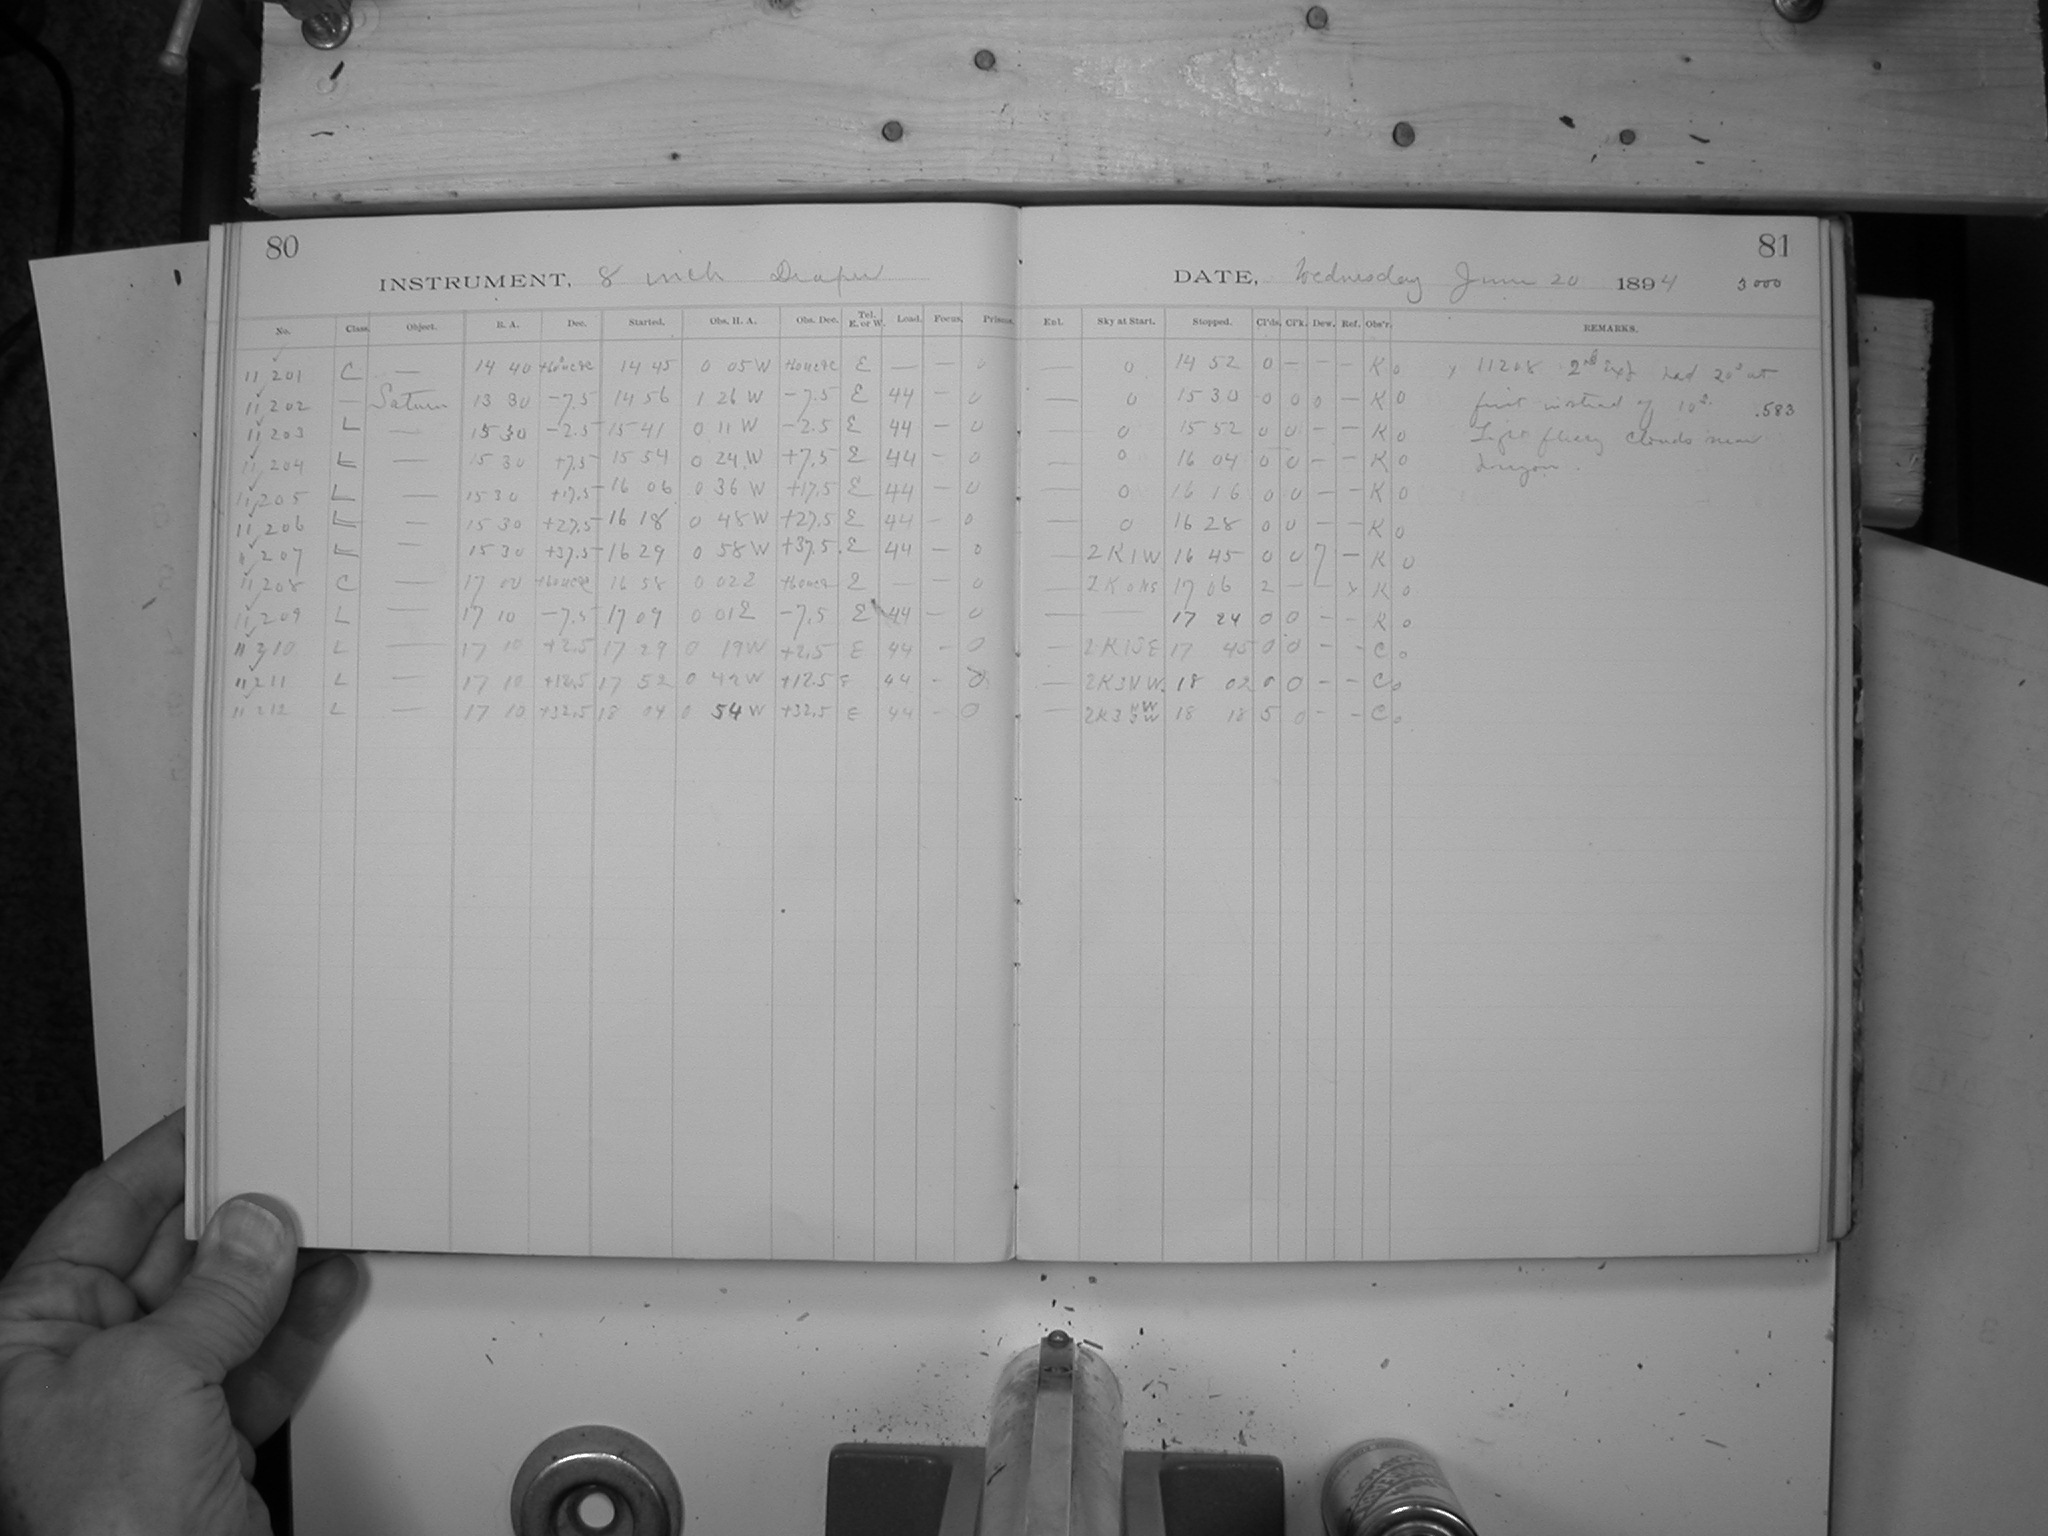 80
81
INSTRUMENT, 8 inch Draper
DATE, Wednesday June 20 1894 3000
No. Class. Object. R. A. Dec. Started. Obs. H. A. Obs. Dec. Tel. E. or W. Load. Focus. Prisms. Ent. Sky at Start. Stopped. Cl'ds. Cl'k. Dew. Ref. Obs'r. REMARKS.
11201 C — 14 40 14 45 0 05 W E — — 0 — 0 14 52 0 — — — K 0 11208 2nd Exp had 20s at
11202 — Saturn 13 30 −7.5 14 56 1 26 W −7.5 E 44 — 0 — 0 15 30 0 0 0 — K 0 first instead of 10s. .583
11203 L — 15 30 −2.5 15 41 0 11 W −2.5 E 44 — 0 — 0 15 52 0 0 — — K 0 Light clouds near
11204 L — 15 30 +7.5 15 54 0 24 W +7.5 E 44 — 0 — 0 16 04 0 0 — — K 0
11205 L — 15 30 +17.5 16 06 0 36 W +17.5 E 44 — 0 — 0 16 16 0 0 — — K 0
11206 L — 15 30 +27.5 16 18 0 48 W +27.5 E 44 — 0 — 0 16 28 0 0 — — K 0
11207 L — 15 30 +37.5 16 29 0 58 W +37.5 E 44 — 0 — 2 K 1 W 16 45 0 0 7 — K 0
11208 C — 17 00 16 58 0 02 E E — — 0 — 17 06 2 — — x K 0
11209 L — 17 10 −7.5 17 09 0 01 E −7.5 E 44 — 0 — — 17 24 0 0 — — K 0
11210 L — 17 10 +2.5 17 29 0 19 W +2.5 E 44 — 0 — 2 K 1 S E 17 45 0 0 — — C 0
11211 L — 17 10 +12.5 17 52 0 42 W +12.5 E 44 — 0 — 2 K 3 N W. 18 02 0 — — C 0
11212 L — 17 10 +32.5 18 04 0 54 W +32.5 E 44 — 0 — 2 K 3 NW SW 18 18 5 0 — — C 0